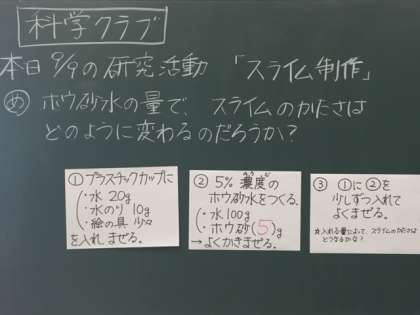 科学クラブ
本日9/9の研究活動 「スライム制作」
め ホウ砂水の量で、スライムのかたさは
どのように変わるのだろうか？
① プラスチックカップに
・水 20g
・水のり 10g
・絵の具 少々
を入れ まぜる。
② 5% 濃度の
ホウ砂水をつくる。
・水 100g
・ホウ砂(5)g
→よくかきまぜる。
③ ①に②を
少しずつ入れて
よくまぜる。
☆入れる量によって、スライムのかたさは
どうなるかな？